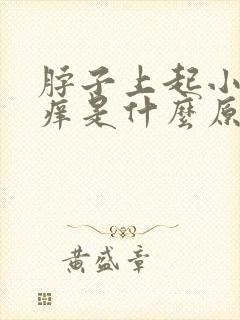 脖子上起小
痒是什麼原
黄盛章